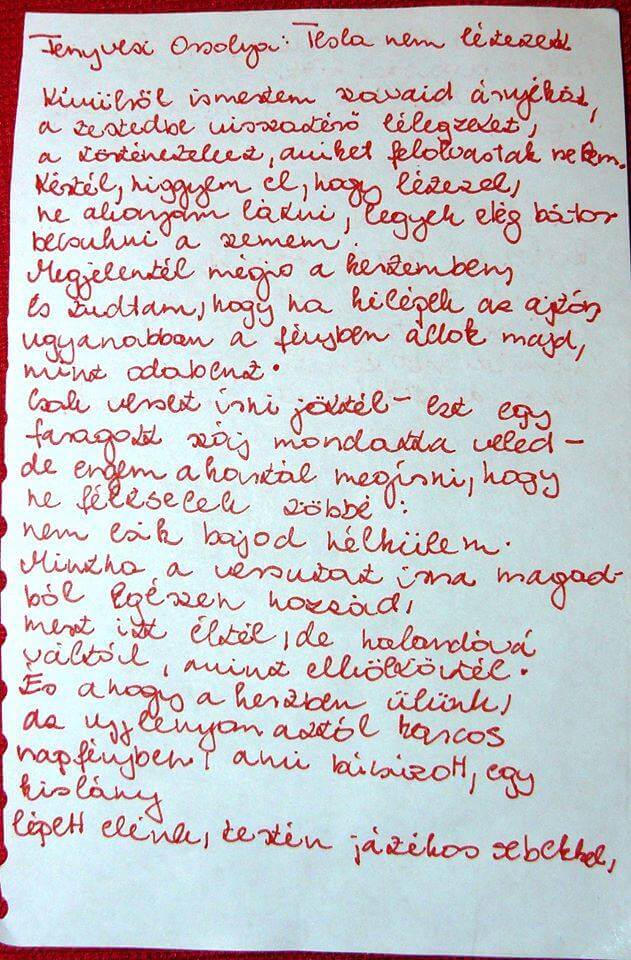 Fenyvesi Orsolya: Tesla nem létezett
Kívülről ismertem szavaid árnyékát,
a testedbe visszatérő lélegzetet,
a történeteket, amiket felolvastak nekem.
Kértél, higgyem el, hogy létezel,
ne akarjam látni, legyek elég bátor
becsukni a szemem.
Megjelentél mégis a kertemben,
És tudtam, hogy ha kilépek az ajtón,
ugyanabban a fényben állok majd,
mint odabent.
Csak verset írni jöttél – ezt egy
faragott száj mondatta veled –
de engem akartál megírni, hogy
ne féltselek többé:
nem esik bajod nélkülem.
Mintha a versutat írna magad-
ból Egészen hozzád,
mert itt éltél, de halandóvá
váltál, amint elköltöztél.
És ahogy a kertben ülünk,
az ujjlenyomattól karcos
napfényben, ami bírizott, egy
kislány
lépett elénk, testén játékos sebekkel,